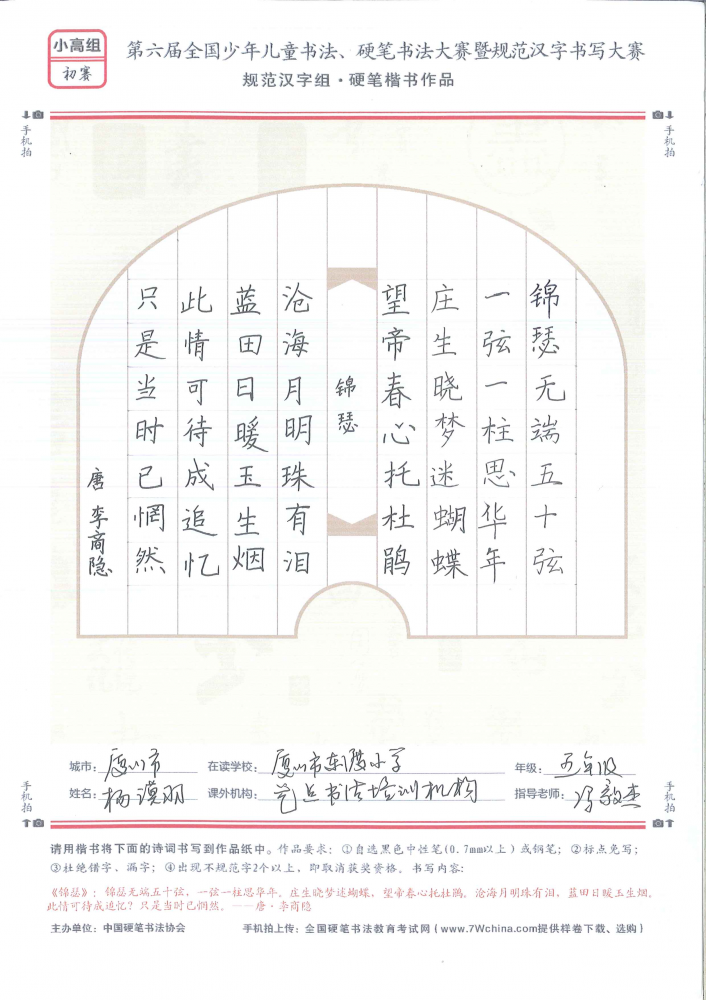 小高组
初赛
第六届全国少年儿童书法、硬笔书法大赛暨规范汉字书写大赛
规范汉字组·硬笔楷书作品
手机拍
手机拍
锦瑟无端五十弦
一弦一柱思华年
庄生晓梦迷蝴蝶
望帝春心托杜鹃
锦瑟
沧海月明珠有泪
蓝田日暖玉生烟
此情可待成追忆
只是当时已惘然
唐 李商隐
城市：厦门市 在读学校：厦门市东渡小学 年级：五年级
姓名：杨漠羽 课外机构：艺点书法培训机构 指导老师：冯毅杰
手机拍
手机拍
请用楷书将下面的诗词书写到作品纸中。作品要求：①自选黑色中性笔(0.7mm以上)或钢笔；②标点免写；
③杜绝错字、漏字；④出现不规范字2个以上，即取消获奖资格。书写内容：
《锦瑟》：锦瑟无端五十弦，一弦一柱思华年。庄生晓梦迷蝴蝶，望帝春心托杜鹃。沧海月明珠有泪，蓝田日暖玉生烟。
此情可待成追忆？只是当时已惘然。——唐·李商隐
主办单位：中国硬笔书法协会 手机拍上传：全国硬笔书法教育考试网（www.7Wchina.com提供样卷下载、选购）